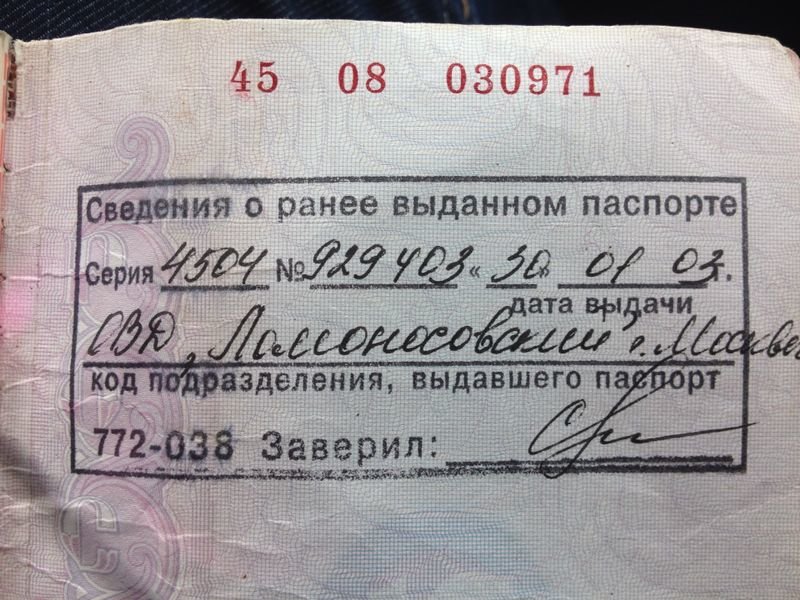 45 08 030971
Сведения о ранее выданном паспорте
Серия 4504 № 929403 «30» 01 03 г.
дата выдачи
ОВД „Ломоносовский” г. Москвы
код подразделения, выдавшего паспорт
772-038 Заверил: